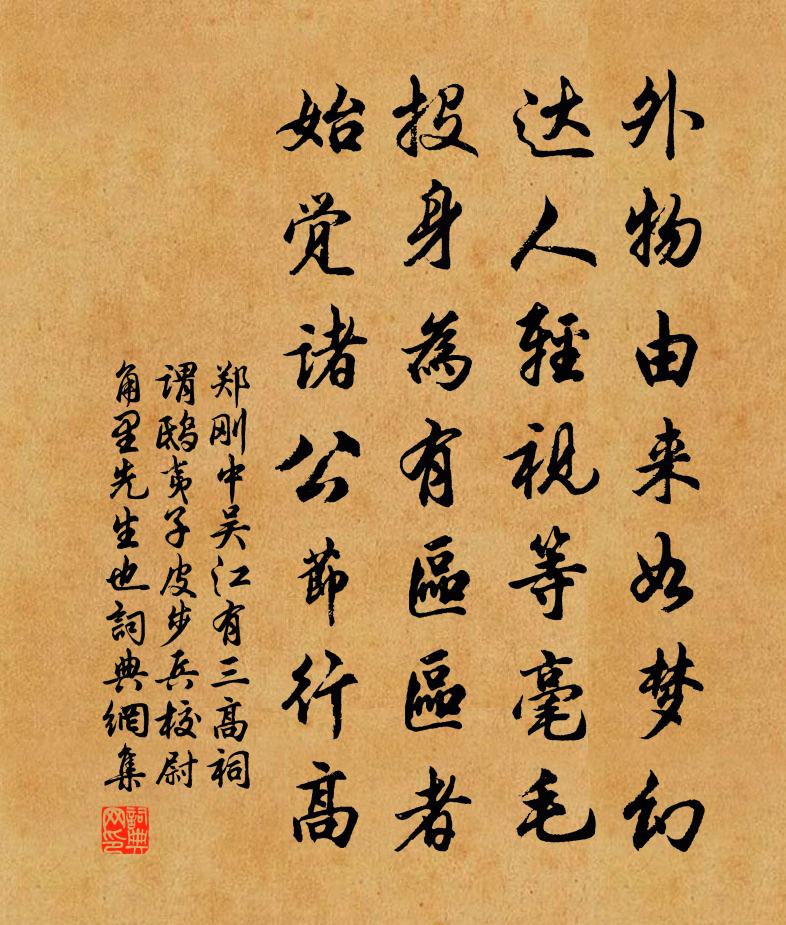 外物由来如梦幻
达人輕視等毫毛
投身為有區區者
始觉诸公節行高
郑刚中吴江有三高祠
谓鸱夷子皮步兵校尉
角里先生也詞典網集
詞典
网印